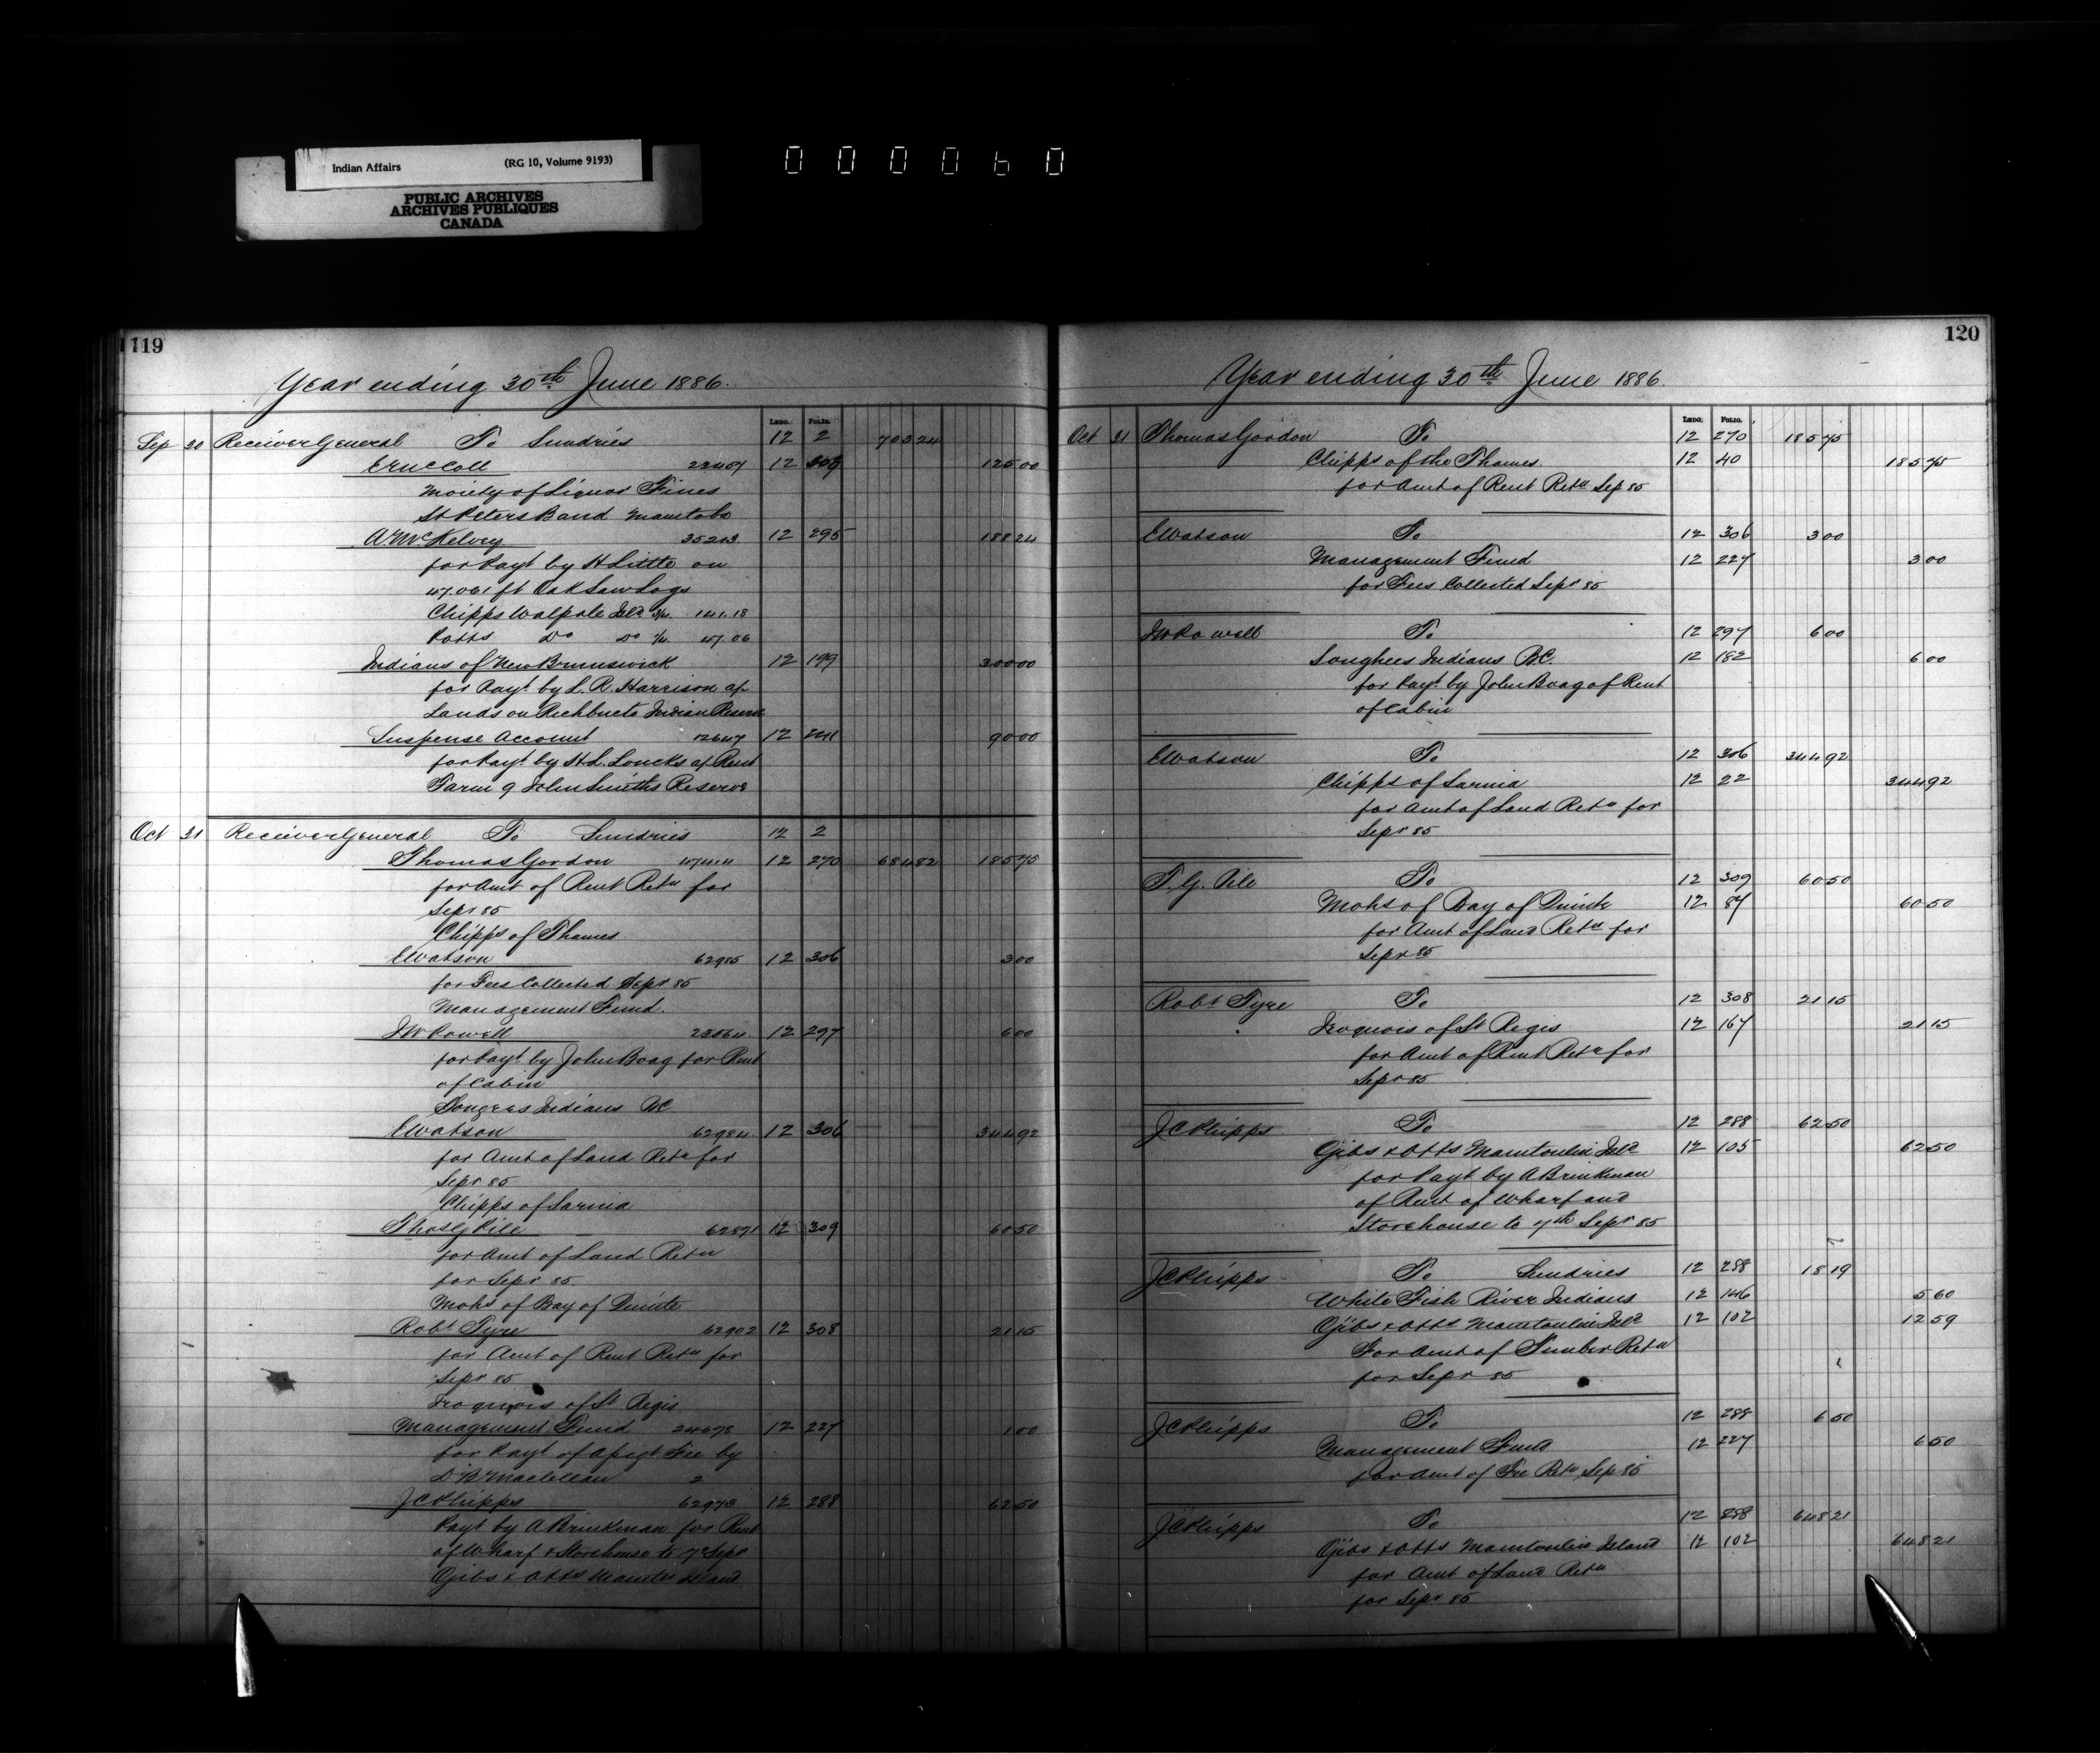 Indian Affairs (RG 10, Volume 9193)
PUBLIC ARCHIVES
ARCHIVES PUBLIQUES
CANADA
000060
119
Year ending 30th June 1886.
Ledg. Folio.
Sep 30 Receiver General To Sundries 12 2 703 24
E McColl 12 125 00
Moiety of Liquor Fines
St Peters Band Manitoba
A. McKelvey 35213 12 295 188 24
for Payt by H Little on
47.061 ft Oak Saw Logs
Chipps Walpole Isld 3/4 141.18
Potts Do Do 1/4 47.06
Indians of New Brunswick 12 199 300 00
for Payt by L. R. Harrison a/c
Lands on Richbucto Indian Reserve
Suspense Account 12647 12 241 90 00
for Payt by H.L. Loucks a/c Rent
Farm 9 John Smiths Reserve
Oct 31 Receiver General To Sundries 12 2
Thomas Gordon 12 270 684 82 185 75
for Amt of Rent Retn for
Sepr 85
Chipps of Thames
E Watson 62985 12 306 3 00
for Fees Collected Sepr 85
Management Fund.
J W Powell 12 297 6 00
for Payt by John Boag for Rent
of Cabin
Songees Indians BC.
E Watson 62984 12 306 344 92
for Amt of Land Retn for
Sepr 85
Chipps of Sarnia
Thos G Pile 62871 12 309 60 50
for Amt of Land Retn
for Sepr 85
Mohs of Bay of Quinte
Robt Tyre 62902 12 308 21 15
for Amt of Rent Retn for
Sepr 85
Iroquois of St Regis
Management Fund 24678 12 227 1 00
for Payt of Assgt Fee by
D B Maclellan 2
J C Phipps 62973 12 288 62 50
Payt by A Brinkman for Rent
of Wharf & Storehouse to 7 Sepr
Ojibs & Otts Manitn Island
120
Year ending 30th June 1886.
Ledg. Folio.
Oct 31 Thomas Gordon To 12 270 185 75
Chipps of the Thames. 12 40 185 75
for Amt of Rent Retn Sep 85
E Watson To 12 306 3 00
Management Fund 12 227 3 00
for Fees Collected Sepr 85
J W Powell To 12 297 6 00
Songhees Indians B.C. 12 182 6 00
for Payt by John Boag of Rent
of Cabin
E Watson To 12 306 344 92
Chipps of Sarnia 12 22 344 92
for Amt of Land Retn for
Sepr 85
T. G. Pile To 12 309 60 50
Mohs of Bay of Quinte 12 87 60 50
for Amt of Land Retn for
Sepr 85
Robt Tyre To 12 308 21 15
Iroquois of St Regis 12 167 21 15
for Amt of Rent Retn for
Sepr 85
J C Phipps To 12 288 62 50
Ojibs & Otts Manitoulin Isld 12 105 62 50
for Payt by A Brinkman
of Rent of Wharf and
Storehouse to 7th Sepr 85
J C Phipps To Sundries 12 288 18 19
White Fish River Indians 12 146 5 60
Ojibs & Otts Manitoulin Isld 12 102 12 59
For Amt of Timber Retn
for Sepr 85
J C Phipps To 12 288 6 50
Management Fund 12 227 6 50
for Amt of Fee Retn Sep 85
J C Phipps To 12 288 648 21
Ojibs & Otts Manitoulin Island 12 102 648 21
for Amt of Land Retn
for Sepr 85